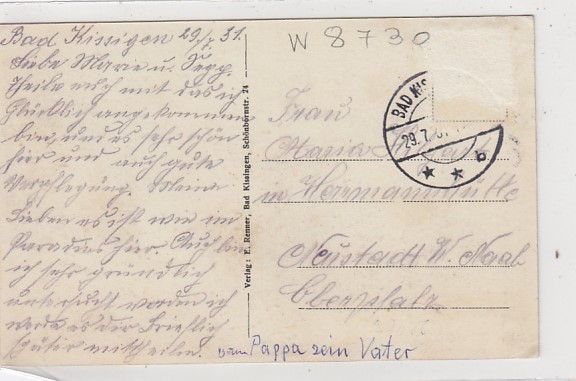 Bad Kissigen 29/7. 31.
Liebe Marie u. Sepp.
Theile euch mit das ich
Glücklich angekommen
bin, und es sehr schön
hir und auch gute
Verpflegung. Meine
Lieben es ist wie im
Paradies hier. Auch bin
ich sehr gründlich
untersucht worden ich
werde es der Brieflich
später mitteilen.
vom Pappa sein Vater
Verlag: E. Renner, Bad Kissingen, Schönbornstr. 24
W 8730
BAD KIS
29. 7.
b
Frau
Maria
in Herrmannhütte
Neustadt W. Naab
Oberpfalz